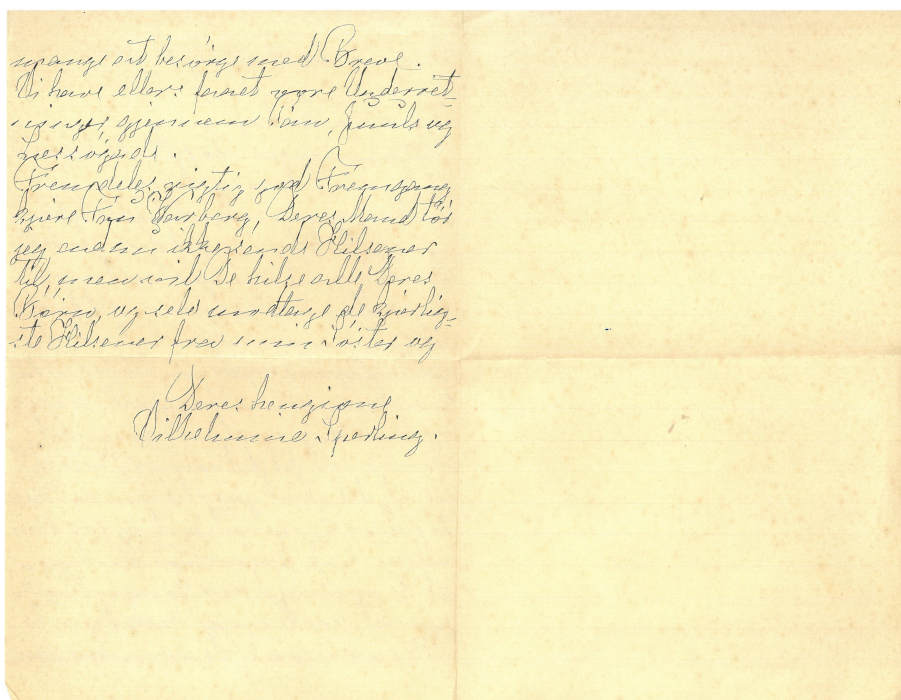 mange at besørge med Breve.
Vi have ellers faaet vore Underret-
ninger gjennem og
Fremdeles rigtig god Fremgang
kjære Fru Warberg, Deres Mand tør
jeg endnu ikke sende Hilsener
til, men vil De hilse alle Deres
Børn, og selv modtage de kjærlig-
ste Hilsener fra min Söster og
Deres hengivne
Vilhelmine Sperling.